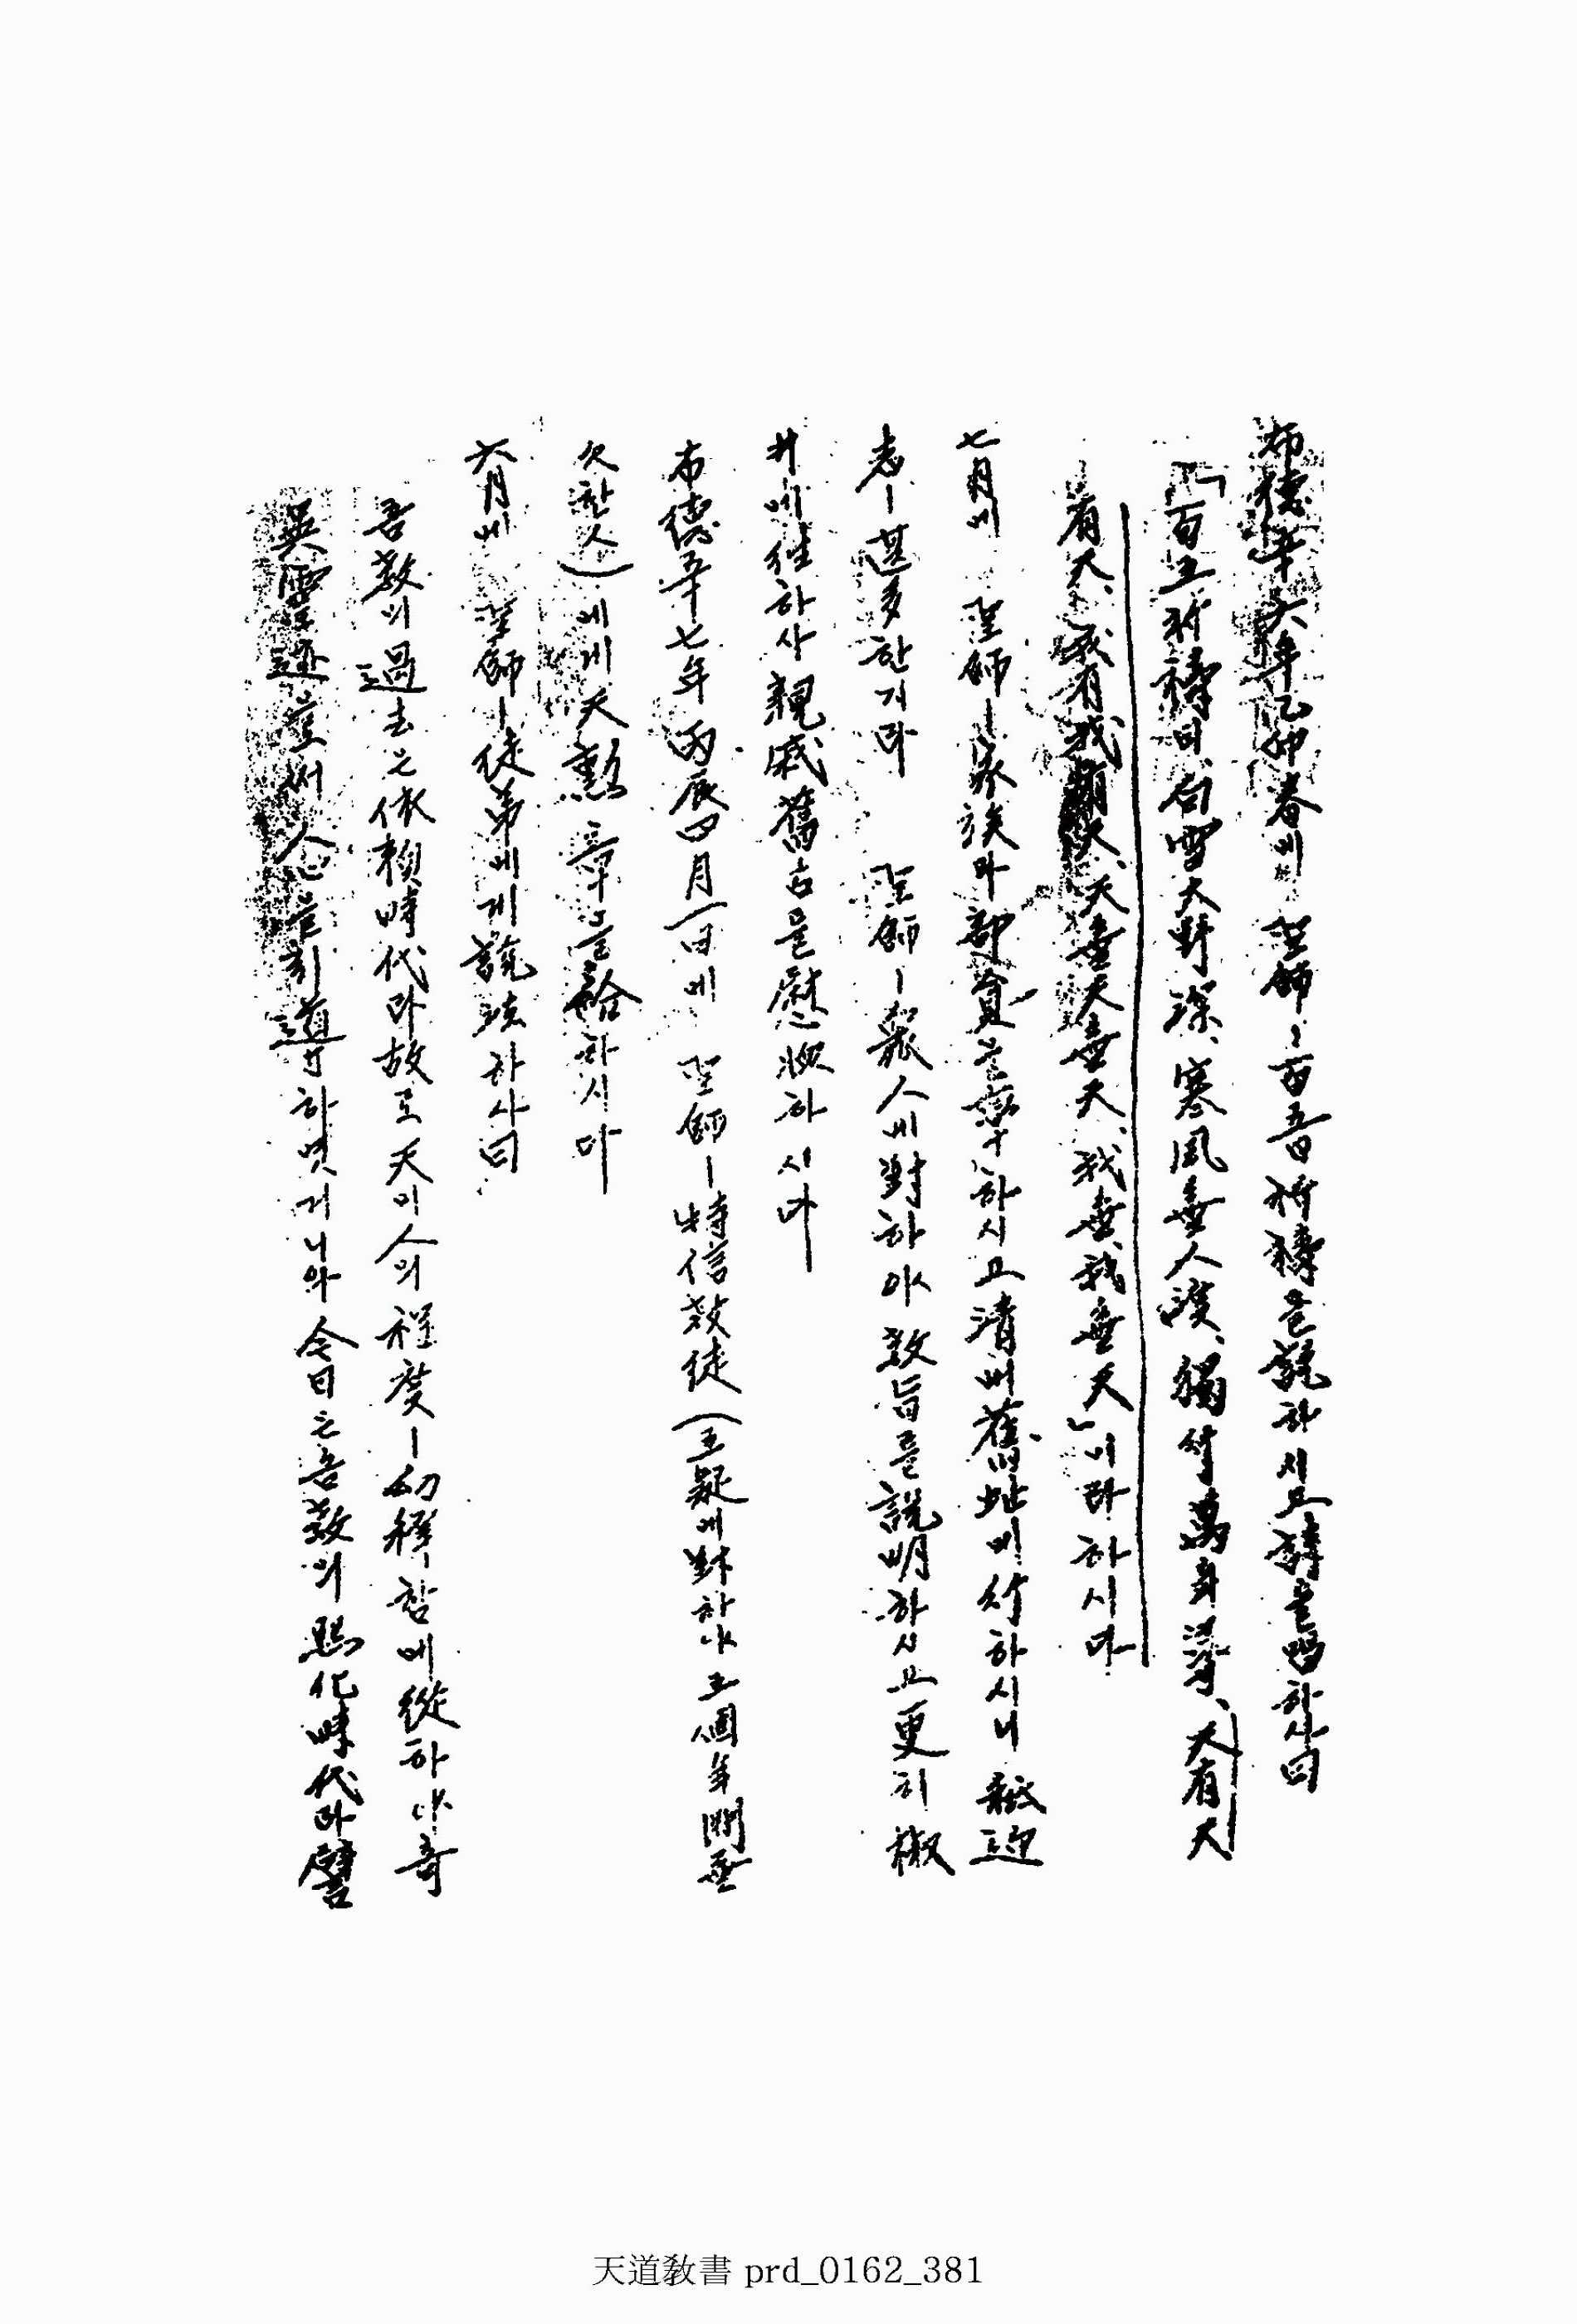 布德五十六年乙卯春에 聖師ㅣ 百五日祈禱를 說하시고 詩를 唱하사曰
「百五祈禱日、白雪大野深、寒風無人淚、獨行萬里尋、天有天
有天、我有我 天、天無天無天、我無我無天」이라하시다
七月에 聖師ㅣ 家族과 部員을 率하시고 淸州舊址에 行하시니 祗迎
者ㅣ 甚多한지라 聖師ㅣ 衆人에 對하야 敎旨를 說明하시고 更히 椒
井에 往하사 親戚舊古를 慰悅하시다
布德五十七年丙辰四月一日에 聖師ㅣ 特信敎徒(五款에 對하야 五個年間無
欠한人)에게 天勳章을 給하시다
六月에 聖師ㅣ 徒弟에게 說法하사曰
吾敎의 過去는 依賴時代라 故로 天이 人의 程度ㅣ 幼穉함에 從하야 奇
異靈迹으로써 人心을 引導하엿거니와 今日은 吾敎의 顯化時代라 譬